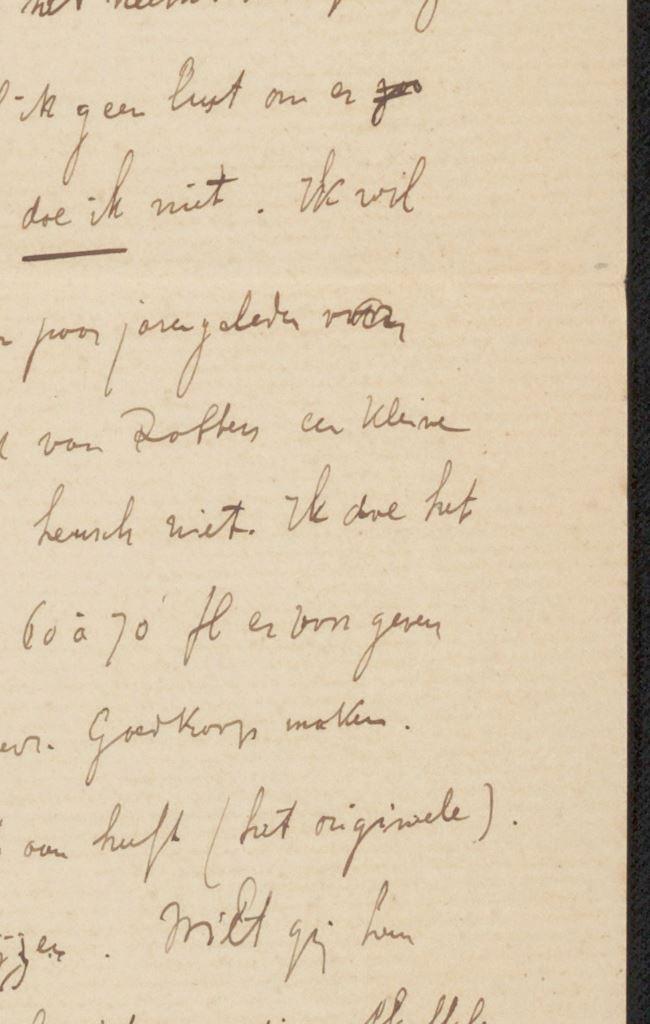 het
ik geen lust om er
doe ik niet. Ik wil
paar jaren geleden voor
van Rotters een kleine
heusch niet. Ik doe het
60 à 70 fl er voor geven
Goedkoop maken.
aan heeft (het origineele).
Wilt gij hem